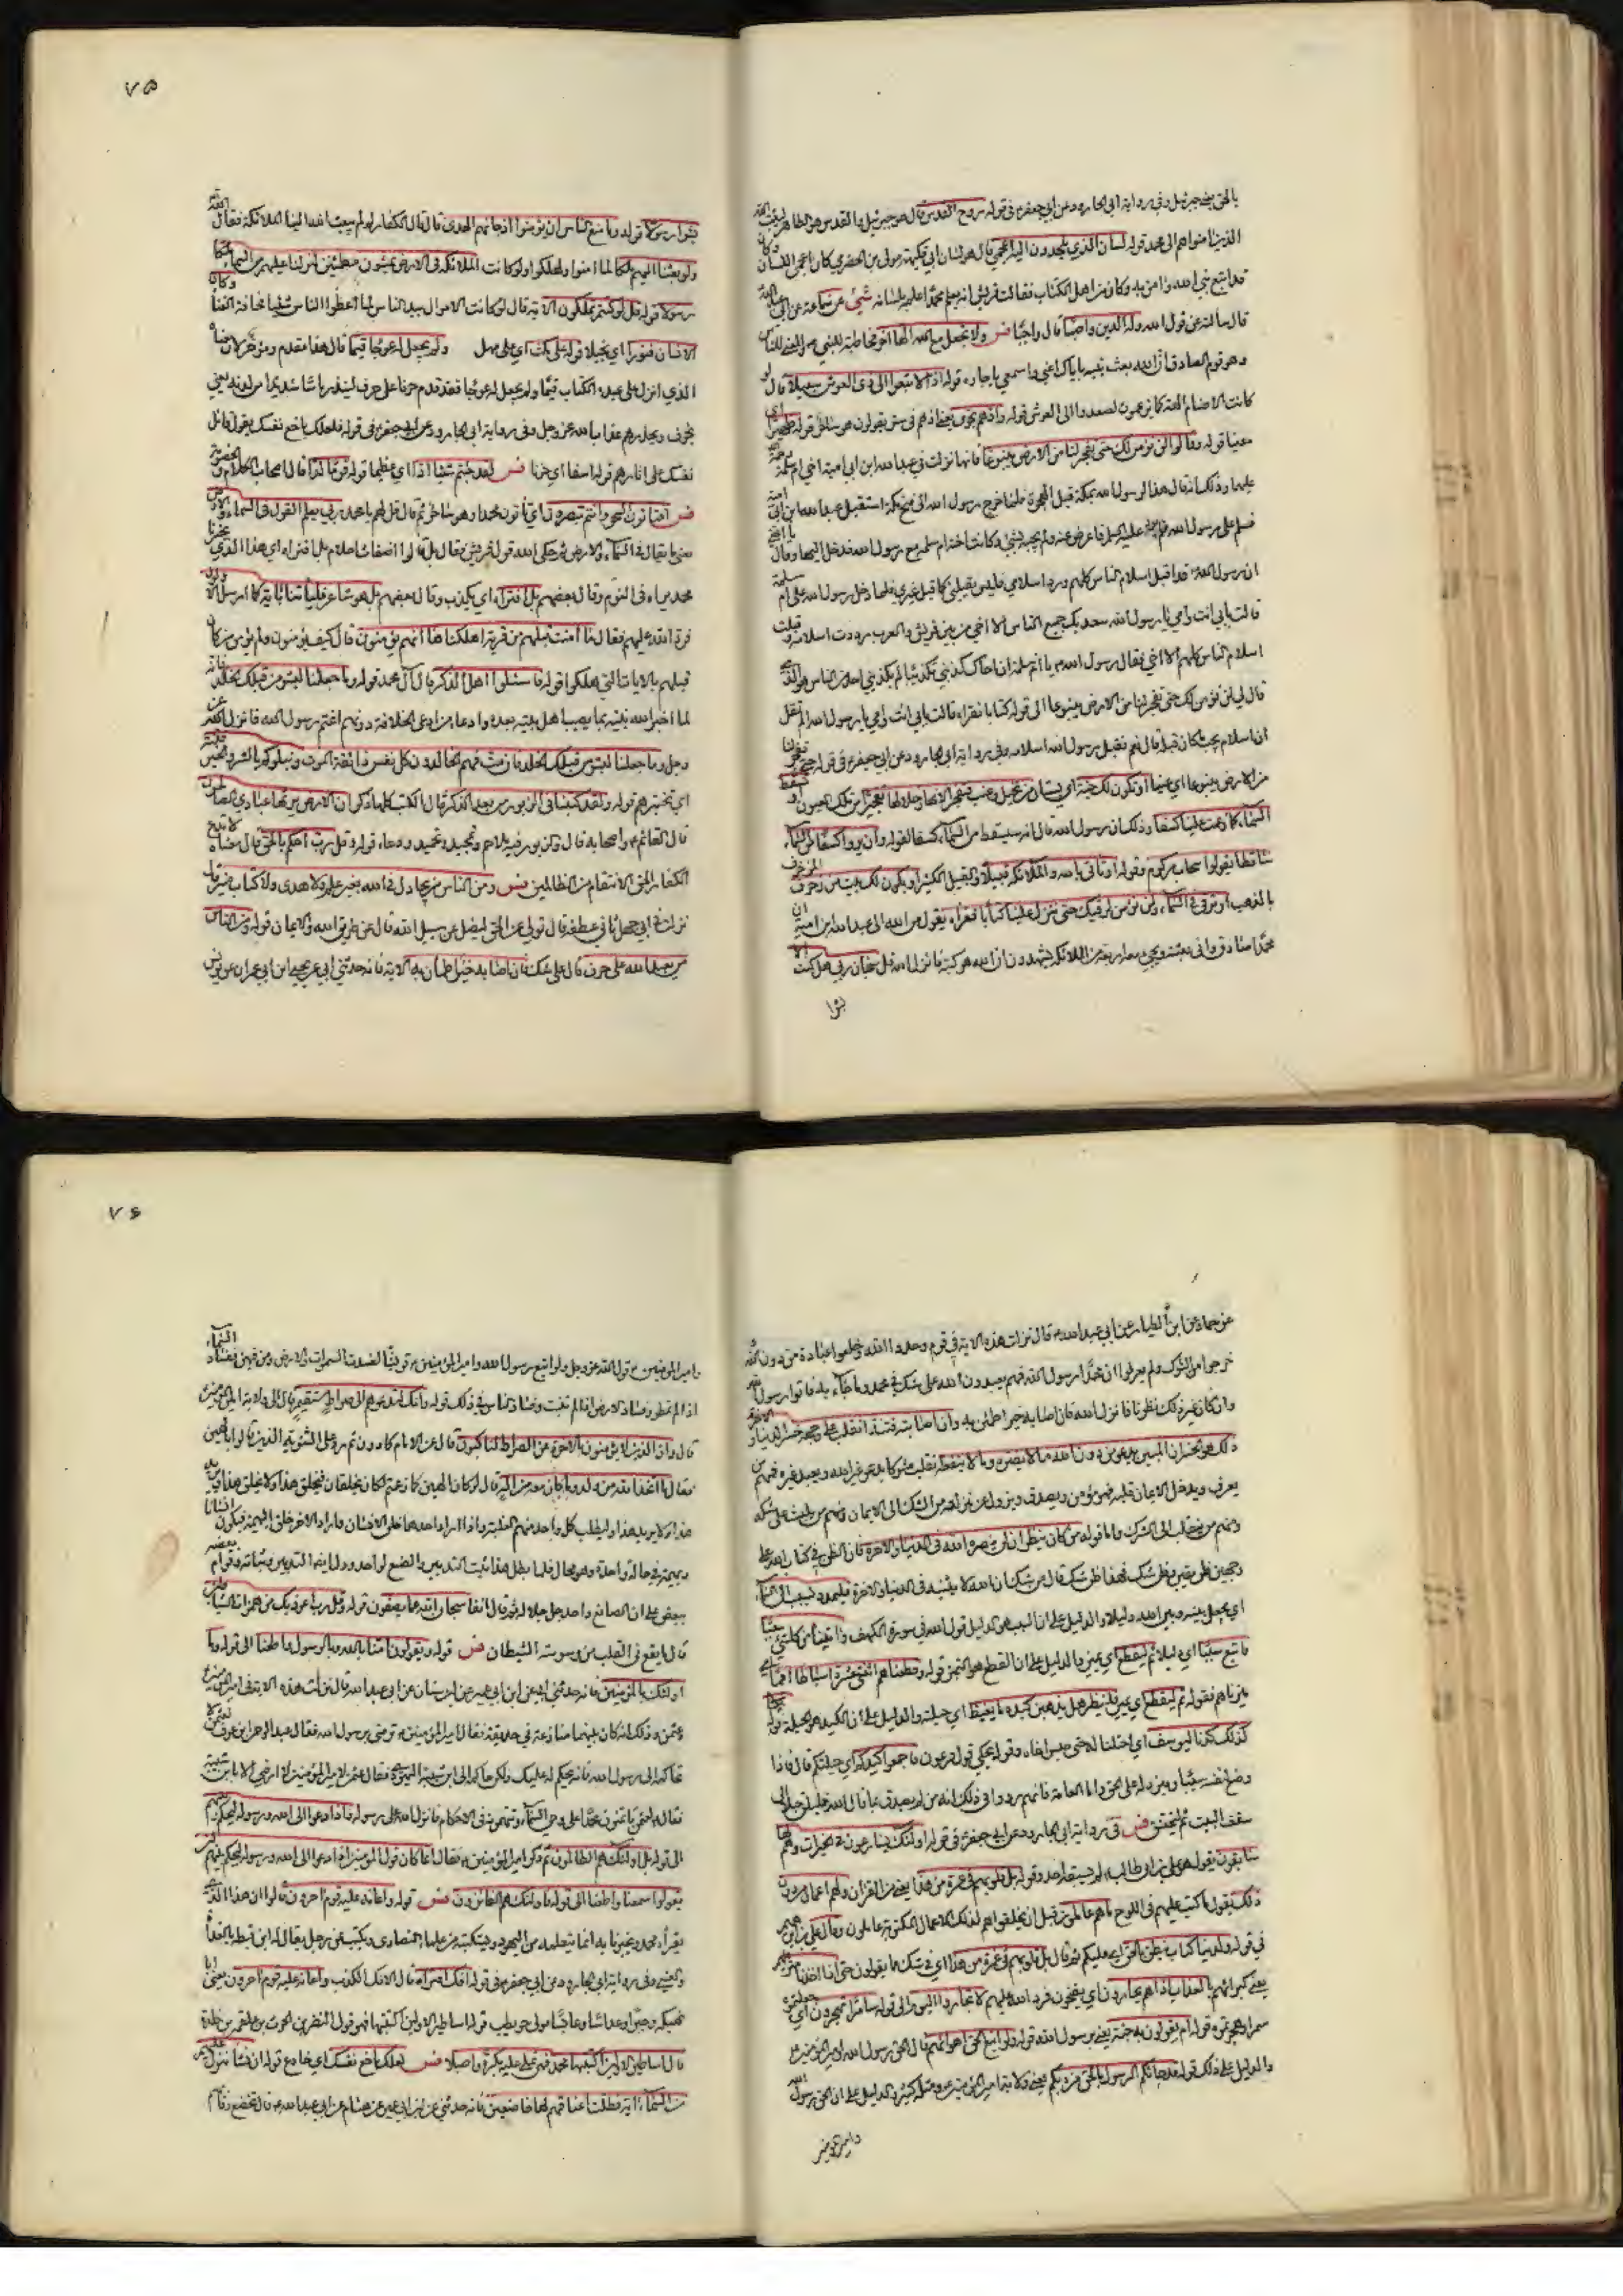 بالحق يعني جبرئيل وفي رواية ابي الجارود عن ابي جعفر في قوله روح القدس قال هو جبرئيل والقدس هو الطاهر ليثبت الله
الذين امنوا هم ال محمد قوله لسان الذي يلحدون اليه اعجمي قال هو لسان ابي فكيهة مولى بن الحضرمي كان اعجمي اللسان وكان
قد اتبع نبي الله وامن به وكان من اهل الكتاب فقالت قريش انه يعلم محمدا علمه بلسانه شي عن سماعة عن ابي عبد الله
قال سالته عن قول الله وله الدين واصبا قال واجبا فس ولا تجعل مع الله الها اخر مخاطبة للنبي والمعنى للناس
وهو قوم الصادق ان الله بعث نبيه باياك اعني واسمعي يا جاره قوله اذا لابتغوا الى ذي العرش سبيلا قال لو
كانت الاصنام الهة كما يزعمون لصعدوا الى العرش قوله واذ هم نجوى يعني اذ هم في سر يقولون هو ساحر قوله ظهيرا اي
معينا قوله وقالوا لن نؤمن لك حتى تفجر لنا من الارض ينبوعا فانها نزلت في عبد الله ابن ابي امية اخي ام سلمة رحمة الله
عليها وذلك انه قال هذا لرسول الله بمكة قبل الهجرة فلما خرج رسول الله الى فتح مكة استقبل عبد الله ابن ابي امية
فسلم على رسول الله فلم يرد عليه السلم فاعرض عنه ولم يجبه بشيء وكانت اخته ام سلمة مع رسول الله فدخل اليها وقال يا اختي
ان رسول الله قد قبل اسلام الناس كلهم ورد اسلامي فليس يقبلني كما قبل غيري فلما دخل رسول الله على ام سلمة
قالت بابي انت وامي يا رسول الله سعد بك جميع الناس الا اخي من بين قريش والعرب رددت اسلامه وقبلت
اسلام الناس كلهم الا اخي فقال رسول الله يا ام سلمة ان اخاك كذبني تكذيبا لم يكذبني احد من الناس هو الذي
قال لي لن نؤمن لك حتى تفجر لنا من الارض ينبوعا الى قوله كتابا نقرأه قالت بابي انت وامي يا رسول الله الم تقل
ان اسلام يجب ما كان قبله قال نعم فقبل رسول الله اسلامه وفي رواية ابي الجارود عن ابي جعفر في قوله حتى تفجر لنا
من الارض ينبوعا اي عينا او تكون لك جنة اي بستان من نخيل وعنب فتفجر الانهار خلالها تفجيرا من تلك العيون او تسقط
السماء كما زعمت علينا كسفا وذلك ان رسول الله قال انه سيسقط من السماء كسفا لقوله وان يروا كسفا من السماء
ساقطا يقولوا سحاب مركوم وقوله او تاتي بالله والملائكة قبيلا والقبيل الكثير او يكون لك بيت من زخرف المزخرف
بالذهب او ترقى في السماء ولن نؤمن لرقيك حتى تنزل علينا كتابا نقراه يقول من الله الى عبد الله ابن امية ان
محمدا صادق واني بعثته ويجيء معه اربعة من الملائكة يشهدون ان الله هو كتبه فانزل الله قل سبحان ربي هل كنت الا
بشرا
۷۵
بشرا رسولا قوله وما منع الناس ان يؤمنوا اذ جائهم الهدى قال قال الكفار لو لم يبعث الله الينا الملائكة فقال الله
ولو بعثنا اليهم ملكا لما امنوا ولهلكوا ولو كانت الملائكة في الارض يمشون مطمئنين لنزلنا عليهم من السماء ملكا
رسولا قوله قل لو انتم تملكون الاية قال لو كانت الاموال بيد الناس لما اعطوا الناس شيئا مخافة الفناء وكان
الانسان قتورا اي بخيلا قوله على مكث اي على مهل ولم يجعل له عوجا قيما قال هذا مقدم ومؤخر لان معناه
الذي انزل على عبده الكتاب قيما ولم يجعل له عوجا فقد قدم حرفا على حرف لينذر باسا شديدا من لدنه يعني
يخوف ويحذرهم عذاب الله عز وجل وفي رواية ابي الجارود عن ابي جعفر في قوله فلعلك باخع نفسك يقول قاتل
نفسك على اثارهم قوله اسفا اي حزنا فس لقد جئتم شيئا ادا اي عظيما قوله قوما لدا قال اصحاب الكلام والخصومة
فس افتاتون السحر وانتم تبصرون اي تاتون محمدا وهو ساحر ثم قال قل لهم يا محمد ربي يعلم القول في السماء والارض
يعني ما يقال في السماء والارض ثم حكى الله قول قريش فقال بل قالوا اضغاث احلام بل افتراه اي هذا الذي يخبرنا
محمد يراه في النوم وقال بعضهم بل افتراه اي يكذب وقال بعضهم بل هو شاعر فلياتنا باية كما ارسل الاولون
فرد الله عليهم فقال ما امنت قبلهم من قرية اهلكناها افهم يؤمنون قال كيف يؤمنون ولم يؤمن من كان
قبلهم بالايات حتى هلكوا قوله فاسئلوا اهل الذكر قال ال محمد قوله وما جعلنا لبشر من قبلك الخلد فانه
لما اخبر الله نبيه بما يصيب اهل بيته بعده وادعاء من ادعى الخلافة دونهم اغتم رسول الله فانزل الله عز
وجل وما جعلنا لبشر من قبلك الخلد افان مت فهم الخالدون كل نفس ذائقة الموت ونبلوكم بالشر والخير فتنة
اي نختبرهم قوله ولقد كتبنا في الزبور من بعد الذكر قال الكتب كلها ذكر ان الارض يرثها عبادي الصالحون
قال القائم واصحابه قال والزبور فيه ملاحم وتمجيد وتحميد ودعاء قوله وقل رب احكم بالحق قال معناه لا تدع
الكفار الحق الانتقام من الظالمين فس ومن الناس من يجادل في الله بغير علم ولا هدى ولا كتاب منير قال
نزلت في ابي جهل ثاني عطفه قال تولى عن الحق ليضل عن سبيل الله قال عن طريق الله والايمان قوله ومن الناس
من يعبد الله على حرف قال على شك فان اصابه خير اطمان به الاية فانه حدثني ابي عن يحيى ابن ابي عمران عن يونس
عن حماد عن ابن الطيار عن ابي عبد الله قال نزلت هذه الاية في قوم وحدوا الله وخلعوا عبادة من دون الله
خرجوا من الشرك ولم يعرفوا ان محمدا رسول الله فهم يعبدون الله على شك في محمد وما جاء به فاتوا رسول الله
وان كان غير ذلك نظرنا فانزل الله فان اصابه خير اطمئن به وان اصابته فتنة انقلب على وجهه خسر الدنيا والاخرة
ذلك هو الخسران المبين يدعو من دون الله ما لا يضره وما لا ينفعه انقلب مشركا يدعو غير الله ويعبد غيره فمنهم من
يعرف ويدخل الايمان قلبه فهو مؤمن ويصدق ويزول عن منزلته من الشك الى الايمان ومنهم من يلبث على شكه
ومنهم من ينقلب الى الشرك واما قوله من كان يظن ان لن ينصره الله في الدنيا والاخرة فان الظن في كتاب الله على
وجهين ظن يقين وظن شك فهذا ظن شك قال من شك ان الله لا يثيبه في الدنيا والاخرة فليمدد بسبب الى السماء
اي يجعل بينه وبين الله دليلا والدليل على ان السبب هو الدليل قول الله في سورة الكهف واتيناه من كل شيء سببا
فاتبع سببا اي دليلا ثم ليقطع اي يميز والدليل على ان القطع هو التميز قوله وقطعناهم اثنتي عشرة اسباطا امما اي
ميزناهم فقوله ثم ليقطع اي يميز فلينظر هل يذهبن كيده ما يغيظ اي حيلته والدليل على ان الكيد هو الحيلة قوله
كذلك كدنا ليوسف اي احتلنا له حتى حبس اخاه وقوله يحكي قول فرعون فاجمعوا كيدكم اي حيلتكم قال فاذا
وضع لنفسه سببا وميز دله على الحق واما العامة فانهم رووا في ذلك انه من لم يصدق بما قال الله فليلق حبلا الى
سقف البيت ثم ليختنق فس في رواية ابي الجارود عن ابي جعفر في قوله اولئك يسارعون في الخيرات وهم لها
سابقون يقول هو علي بن ابي طالب لم يسبقه احد وقوله بل قلوبهم في غمرة من هذا يعني من القران ولهم اعمال من دون
ذلك يقول ما كتب عليهم في اللوح ما هم عاملون قبل ان يخلقوا هم لذلك الاعمال المكتوبة عاملون وقال علي بن ابراهيم
في قوله ولدينا كتاب ينطق بالحق اي عليكم ثم قال بل قلوبهم في غمرة من هذا اي في شك مما يقولون حتى اذا اخذنا مترفيهم
يعني كبرائهم بالعذاب اذا هم يجارون اي يضجون فرد الله عليهم لا تجاروا اليوم الى قوله سامرا تهجرون اي جعلتموه
سمرا وهجرتموه قوله ام يقولون به جنة يعني برسول الله قوله ولو اتبع الحق اهوائهم قال الحق رسول الله وامير المؤمنين
والدليل على ذلك قوله قد جائكم الرسول بالحق من ربكم يعني ولاية امير المؤمنين ومثله كثير والدليل على ان الحق رسول الله
وامير المؤمنين
۷۶
وامير المؤمنين قول الله عز وجل ولو اتبع رسول الله وامير المؤمنين قريشا لفسدت السموات والارض ومن فيهن ففساد السماء
اذا لم تمطر وفساد الارض اذا لم تنبت وفساد الناس في ذلك قوله وانك لتدعوهم الى صراط مستقيم قال الى ولاية امير المؤمنين
قال وان الذين لا يؤمنون بالاخرة عن الصراط لناكبون قال عن الامام لحادون ثم رد على الثنوية الذين قالوا بالهين
فقال ما اتخذ الله من ولد وما كان معه من اله قال لو كان الهين كما زعمتم لكان يخلقان فيخلق هذا ولا يخلق هذا ويريد
هذا ولا يريد هذا وليطلب كل واحد منهم الغلبة واذا اراد احدهما خلق الانسان واراد الاخر خلق البهيمة فيكون انسانا
وبهيمة في حالة واحدة وهو محال فلما بطل هذا ثبت التدبير والصنع لواحد ودل ايضا التدبير وثباته وقوام بعضه
ببعض على ان الصانع واحد جل جلاله ثم قال انفا سبحان الله عما يصفون قوله وقل رب اعوذ بك من همزات الشياطين
قال ما يقع في القلب من وسوسة الشيطان فس قوله ويقولون امنا بالله وبالرسول واطعنا الى قوله وما
اولئك بالمؤمنين فانه حدثني ابي عن ابن ابي عمير عن ابن سنان عن ابي عبد الله قال نزلت هذه الاية في امير المؤمنين
وعثمن وذلك انه كان بينهما منازعة في حديقة فقال امير المؤمنين ترضى برسول الله فقال عبد الرحمن بن عوف لعثمن لا
تحاكمه الى رسول الله فانه يحكم له عليك ولكن حاكمه الى ابن شيبة اليهودي فقال عثمن لامير المؤمنين لا ارضى الا بابن شيبة
فقال لعثمن تاتمنون محمدا على وحي السماء وتتهمونه في الاحكام فانزل الله على رسوله واذا دعوا الى الله ورسوله ليحكم بينهم
الى قوله بل اولئك هم الظالمون ثم ذكر امير المؤمنين فقال انما كان قول المؤمنين اذا دعوا الى الله ورسوله ليحكم بينهم ان
يقولوا سمعنا واطعنا الى قوله فاولئك هم الفائزون فس قوله واعانه عليه قوم اخرون قالوا ان هذا الذي
يقرأه محمد ويخبرنا به انما يتعلمه من اليهود ويكتبه من علماء النصارى ويكتب عن رجل يقال له ابن قبيطة
والعشي وفي رواية ابي الجارود عن ابي جعفر في قوله افك افتراه قال الافك الكذب واعانه عليه قوم اخرون يعني ابا
فكيهة وحبرا وعداسا وعابسا مولى حويطب قوله اساطير الاولين اكتتبها فهو قول النضر بن الحرث بن علقمة بن كلدة
قال اساطير الاولين اكتتبها محمد فهي تملى عليه بكرة واصيلا فس لعلك باخع نفسك اي خادع قوله ان نشا ننزل عليهم
من السماء اية فظلت اعناقهم لها خاضعين فانه حدثني عن ابن ابي عمير عن هشام عن ابي عبد الله قال تخضع رقابهم